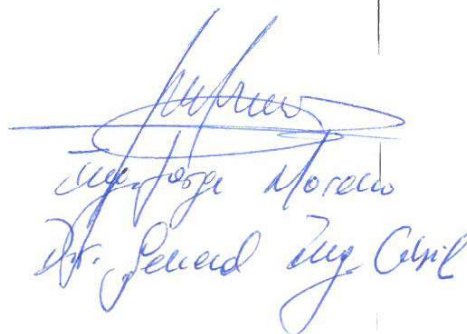 Ing. Jorge Moreno
Dir. General Ing. Civil